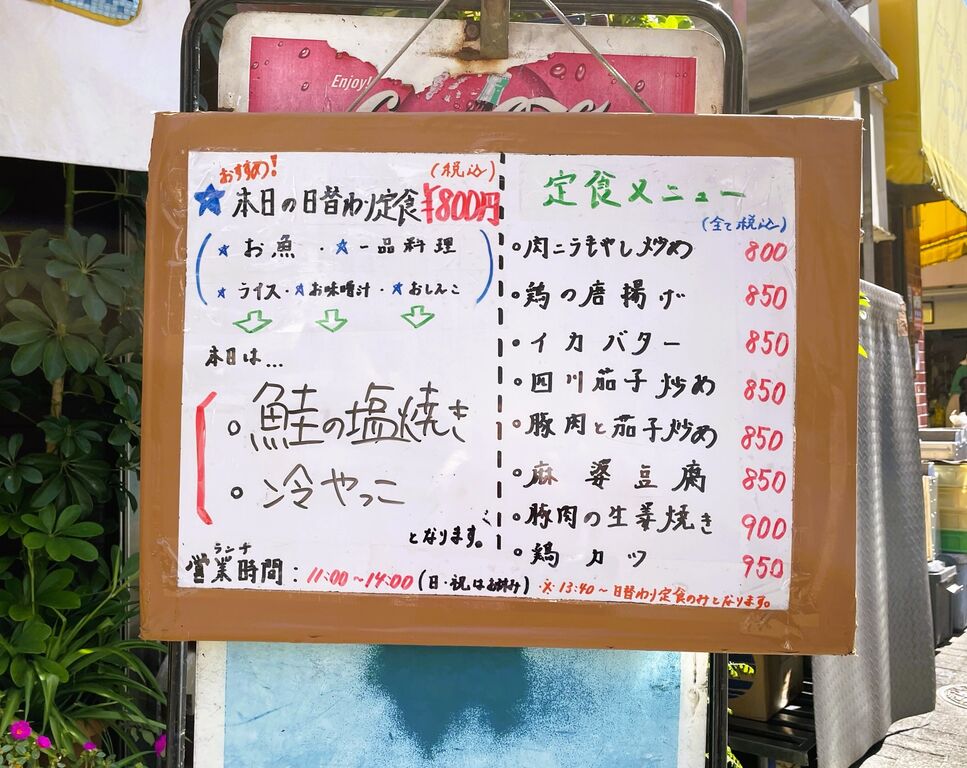 Enjoy!
おすすめ!
(税込)
★本日の日替わり定食¥800円
(★お魚・★一品料理
★ライス・★お味噌汁・★おしんこ)
本日は…
○鮭の塩焼き
○冷やっこ
となります。
ランチ
営業時間:11:00~14:00(日・祝はお休み)
※13:40~日替わり定食のみとなります。
定食メニュー
(全て税込)
○肉ニラもやし炒め 800
○鶏の唐揚げ 850
○イカバター 850
○四川茄子炒め 850
○豚肉と茄子炒め 850
○麻婆豆腐 850
○豚肉の生姜焼き 900
○鶏カツ 950